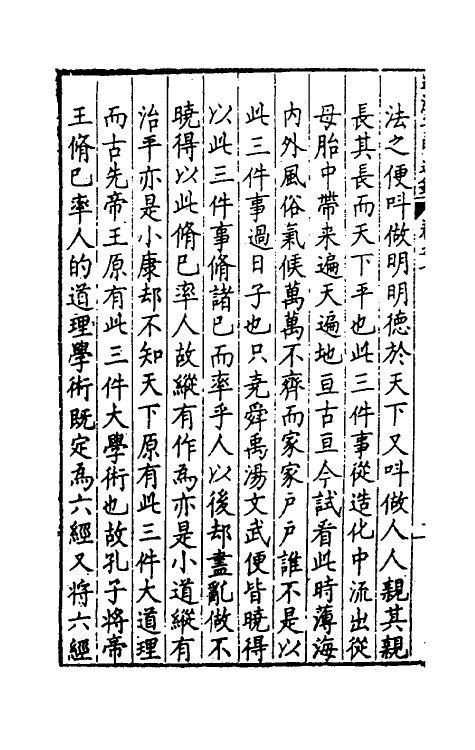 法之便呌做明明德於天下又呌做人人親其親
長其長而天下平也此三件事從造化中流出從
母胎中帶来遍天遍地亘古亘今試看此時薄海
内外風俗氣候萬萬不齊而家家戶戶誰不是以
此三件事過日子也只堯舜禹湯文武便皆曉得
以此三件事脩諸己而率乎人以後却盡亂做不
曉得以此脩己率人故縱有作為亦是小道縱有
治平亦是小康却不知天下原有此三件大道理
而古先帝王原有此三件大學術也故孔子將帝
王脩己率人的道理學術既定為六經又將六經